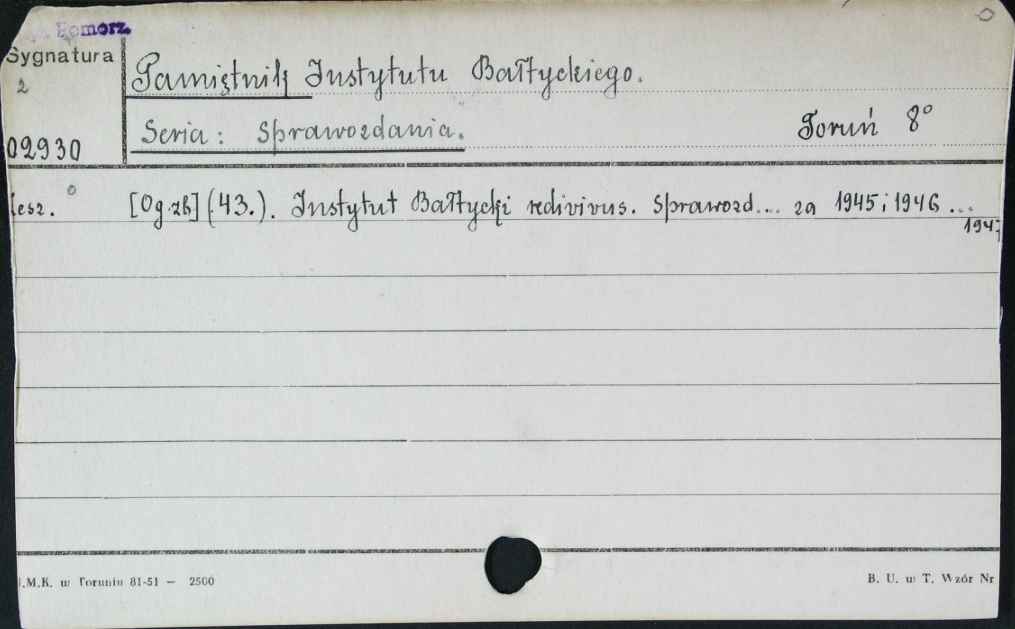 Pomorz.
Sygnatura
2
02930
Pamiętnik Instytutu Bałtyckiego.
Seria: Sprawozdania. Toruń 8°
esz. ° [Og.zb] (43.). Instytut Bałtycki redivivus. Sprawozd... za 1945 i 1946 ...
1947
.M.K. w Toruniu 81-51 — 2500 B. U. w T. Wzór Nr